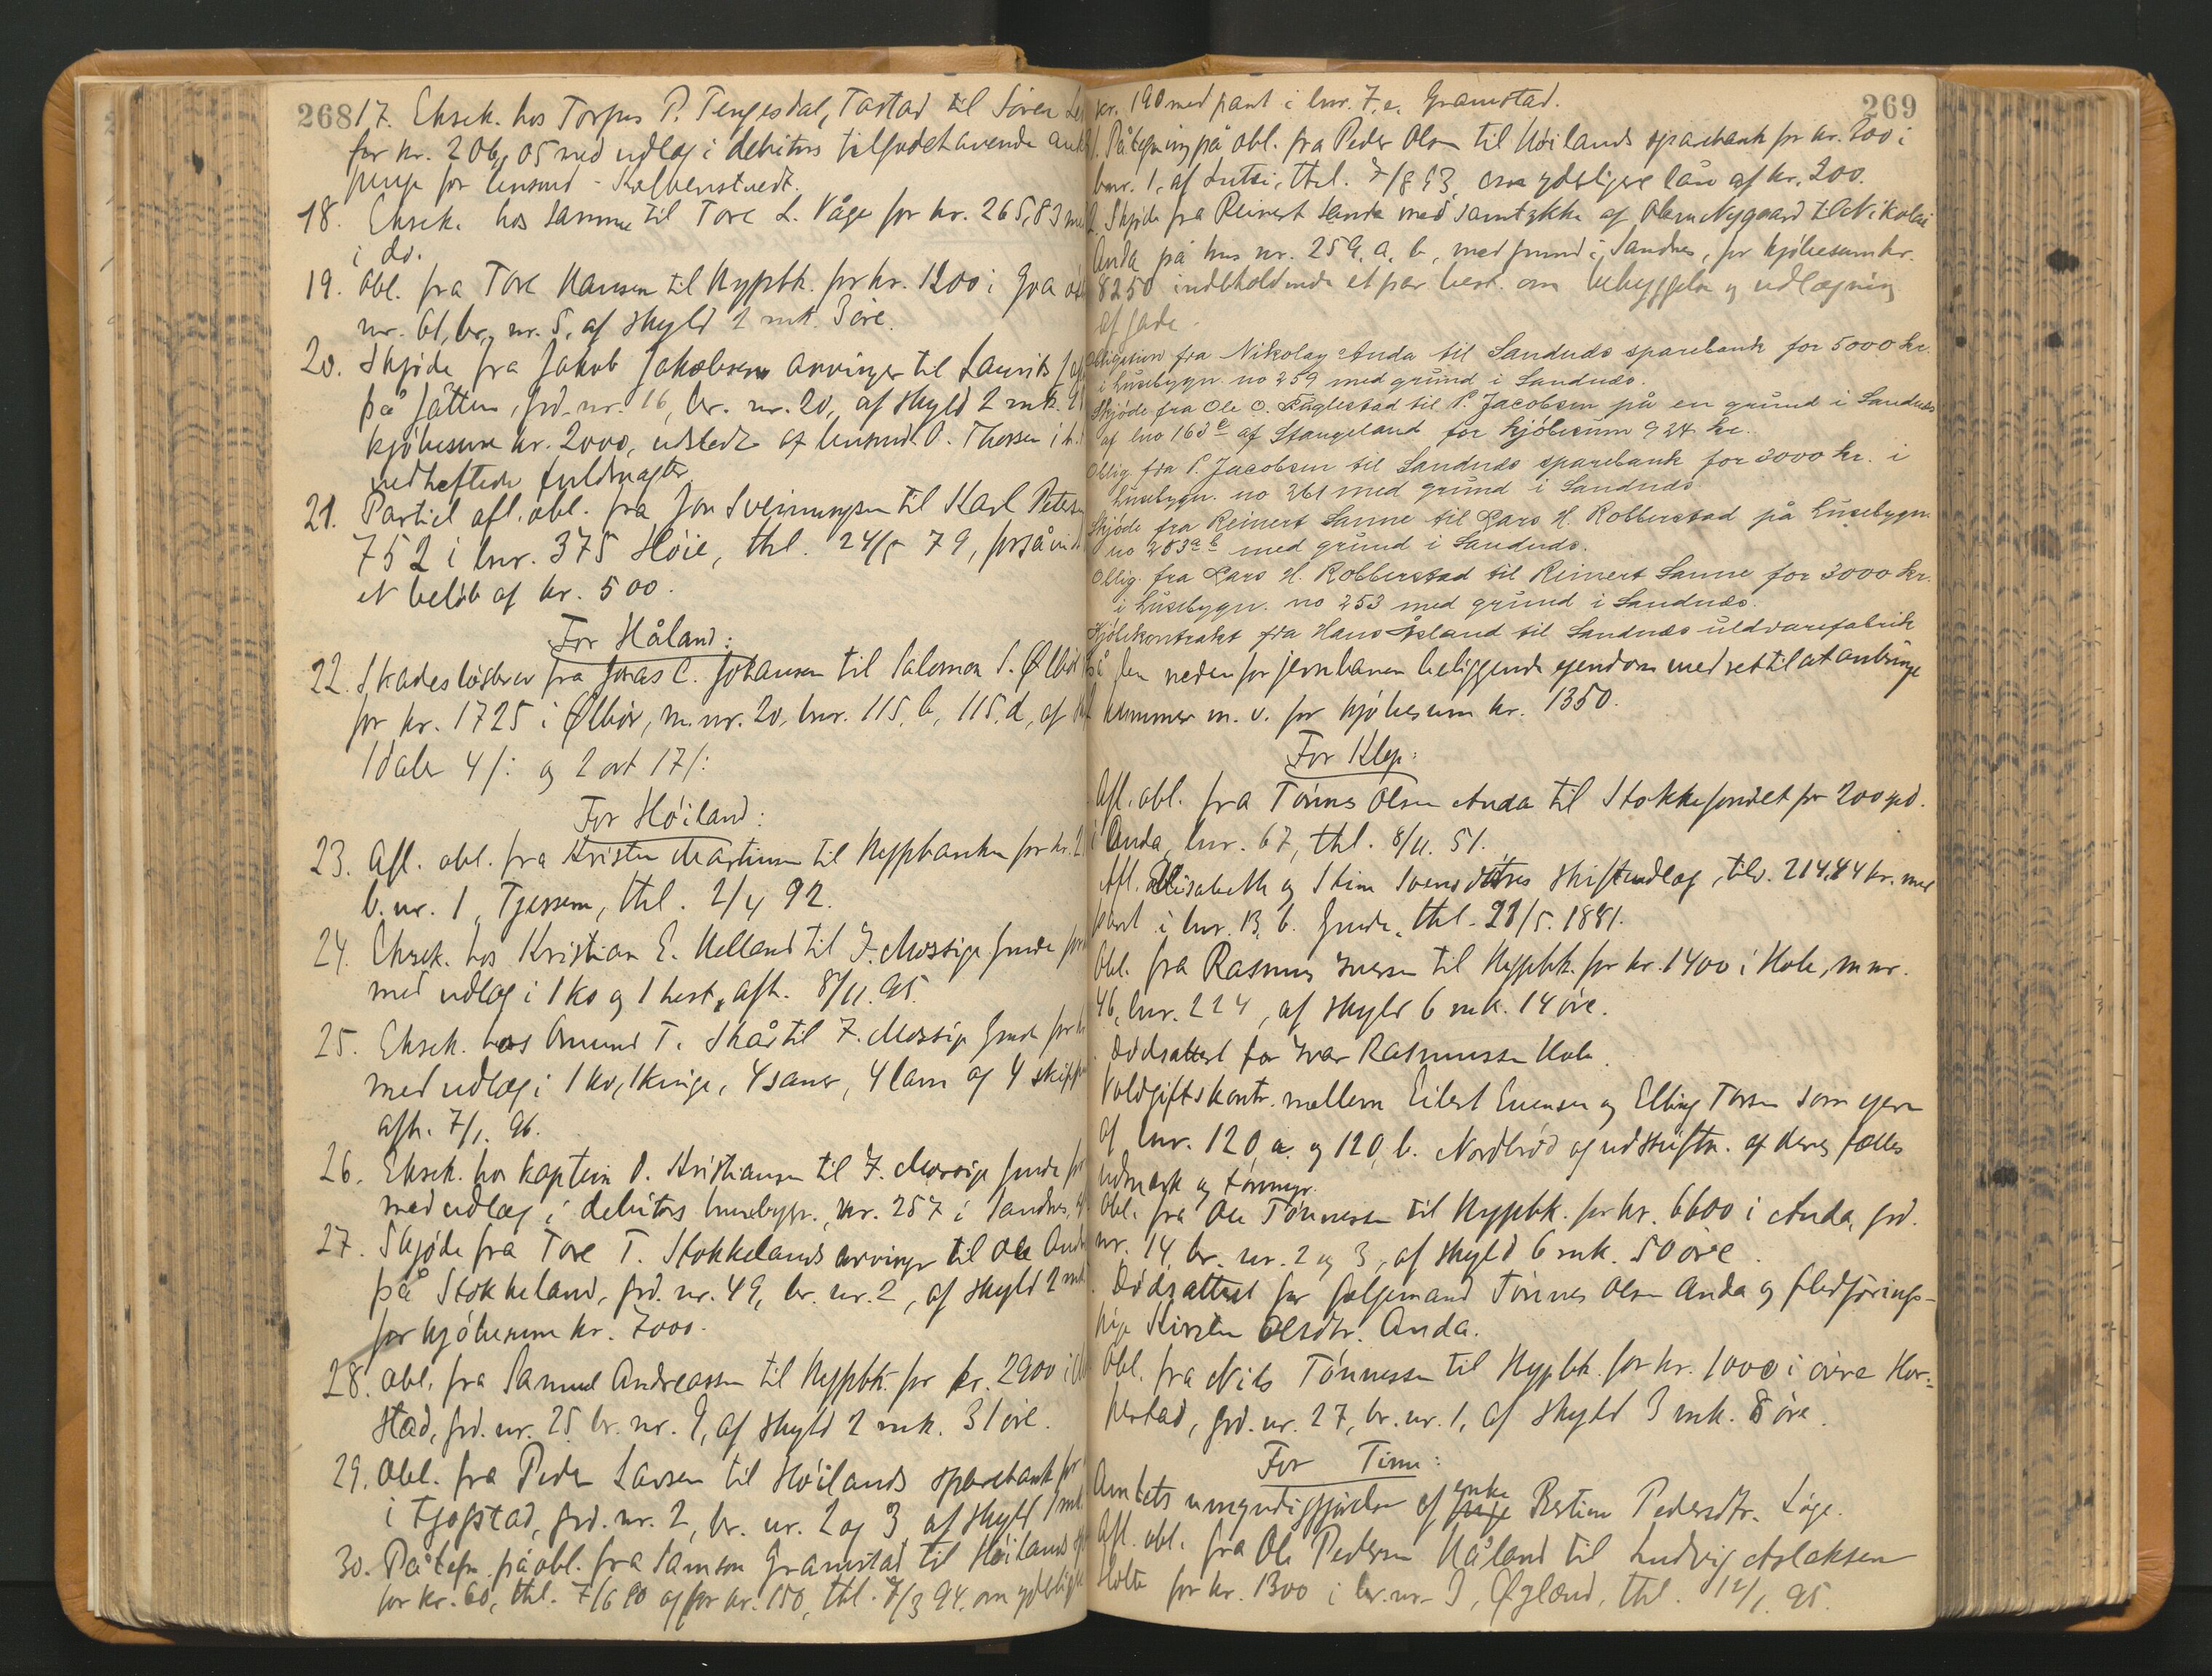 268
17. Eksek. hos Torger P. Tengesdal, Tastad til Søren
for kr. 206,05 med udlæg i debitors tilgodehavende
penge for lensmd.
18. Eksek. hos samme til Tore L. Våge for kr. 265,83
i do.
19. Obl. fra Tore Hansen til Hypbk. for kr. 1200 i
nr. 61, br. nr. 5, af skyld 2 mk. 3 øre.
20. Skjøde fra Jakob Jakobsens arvinger til Laurits
på Jåtten, grd. nr. 16, br. nr. 20, af skyld 2 mk.
kjøbesum kr. 2000, udstedt af lensmd. O. Thorsen i h.
vedheftede fuldmagter
21. Partiel afl. obl. fra Jon Sveinungsen til Karl
752 i lnr. 375 Høie, thl. 24/5 79, forsåvidt
et beløb af kr. 500.
For Håland:
22. Skadesløsbrev fra Jonas C. Johansen til Salomon S.
for kr. 1725 i Ølbør, m.nr. 20, lnr. 115, b, 115, d, af
1 daler 4 /: og 2 ort 17 /:
For Høiland:
23. Afl. obl. fra Kristen Martinsen til Hypbanken for kr.
b. nr. 1, Tjessem, thl. 2/4 92.
24. Eksek. hos Kristian E. Helland til F. Mossige Grude
med udlæg i 1 ko og 1 hest, afh. 8/11. 95.
25. Eksek. hos Omund T. Skår til F. Mossige Grude for
med udlæg i 1 ko, 1 kvige, 4 sauer, 4 lam og 4
afh. 7/1. 96.
26. Eksek. hos kaptein O. Kristiansen til F. Mossige Grude
med udlæg i debitors husebygn. nr. 257 i Sandnes,
27. Skjøde fra Tore T. Stokkelands arvinger til Ole
på Stokkeland, grd. nr. 49, br. nr. 2, af skyld 2
for kjøbesum kr. 7000.
28. Obl. fra Samuel Andreassen til Hypbk. for kr. 2900 i
stad, grd. nr. 25 br. nr. 9, af skyld 2 mk. 31 øre.
29. Obl. fra Peder Larsen til Høilands sparebank for
i Fjogstad, grd. nr. 2, br. nr. 2 og 3, af skyld 1 mk.
30. Påtegn. på obl. fra Samson Gramstad til Høilands
for kr. 60, thl. 7/6 90 og for kr. 150, thl. 7/3 94. om yderligere
269
kr. 190 med pant i lnr. 7, a, Gramstad.
Påtegning på obl. fra Peder Olsen til Høilands sparebank for kr. 200 i
bnr. 1, af Lutsi, thl. 7/8 93, om yderligere lån af kr. 200.
Skjøde fra Reinert Sanne med samtykke af Olsen Nygaard til Nikolai
Anda på hus nr. 259, a, b, med grund i Sandnes, for kjøbesum kr.
8250 indeholdende et par best. om bebyggelse og udlægning
af gade.
Obligation fra Nikolay Anda til Sandnds sparebank for 5000 kr.
i husebygn. no 259 med grund i Sandnæs.
Skjøde fra Ole O. Fuglestad til P. Jacobsen på en grund i Sandnæs
af lno 163 e af Stangeland for kjøbesum 924 kr.
Oblig. fra P. Jacobsen til Sandnds sparebank for 3000 kr. i
husebygn. no 261 med grund i Sandnds
Skjøde fra Reinert Sanne til Lars H. Robberstad på husebygn
no 253 a b med grund i Sandnds.
Oblig. fra Lars H. Robberstad til Reinert Sanne for 3000 kr.
i husebygn. no 253 med grund i Sandnæs.
Kjøbekontrakt fra Hans Åsland til Sandnæs uldvarefabrik
på den neden for jernbanen beliggende ejendom med ret til at anbringe
kummer m. v. for kjøbesum kr. 1350.
For Klep:
Afl. obl. fra Tønnes Olsen Anda til Stokkefondet for 200 spd.
i Anda, lnr. 67, thl. 8/11. 51.
Afl. Elisabeth og Stine Svensdøtres skifteudlæg, tils. 214,84 kr. med
pant i lnr. 13, b. Grude, thl. 21/5. 1881.
Obl. fra Rasmus Iversen til Hypbk. for kr. 1400 i Hole, m nr.
46, lnr. 224, af skyld 6 mk. 14 øre.
Dødsattest for Ivar Rasmussen Hole.
Voldgiftskontr. mellem Eilert Evensen og Elling Torsen som eiere
af lnr. 120, a. og 120, b. Nordbrød og udskiftn. af deres fælles
udmark og torvmyr.
Obl. fra Ole Tønnessen til Hypbk. for kr. 6600 i Anda, grd.
nr. 14 br. nr. 2 og 3, af skyld 6 mk. 50 øre.
Dødsattest for følgemand Tønnes Olsen Anda og fledførings-
pige Kirsten Olsdtr. Anda.
Obl. fra Nils Tønnessen til Hypbk. for kr. 1000 i øvre Hor=
pestad, grd. nr. 27, br. nr. 1, af skyld 3 mk. 8 øre.
For Time:
Amtets umyndiggjørelse af enke Bertine Pedersdtr. Lye.
Afl. obl. fra Ole Pedersen Håland til Ludvig Aslaksen
Holte for kr. 1300 i br. nr. 9, Øgland, thl. 12/1. 95.